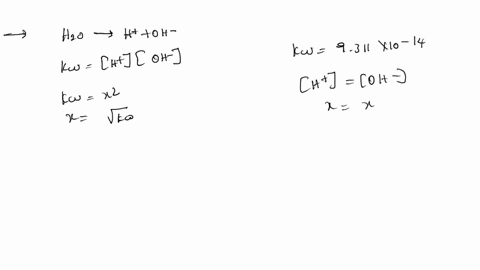 → H2O → H+ + OH-
Kw = [H+][OH-]
Kw = x2
x = √Kw
Kw = 9.311 × 10-14
[H+] = [OH-]
x = x